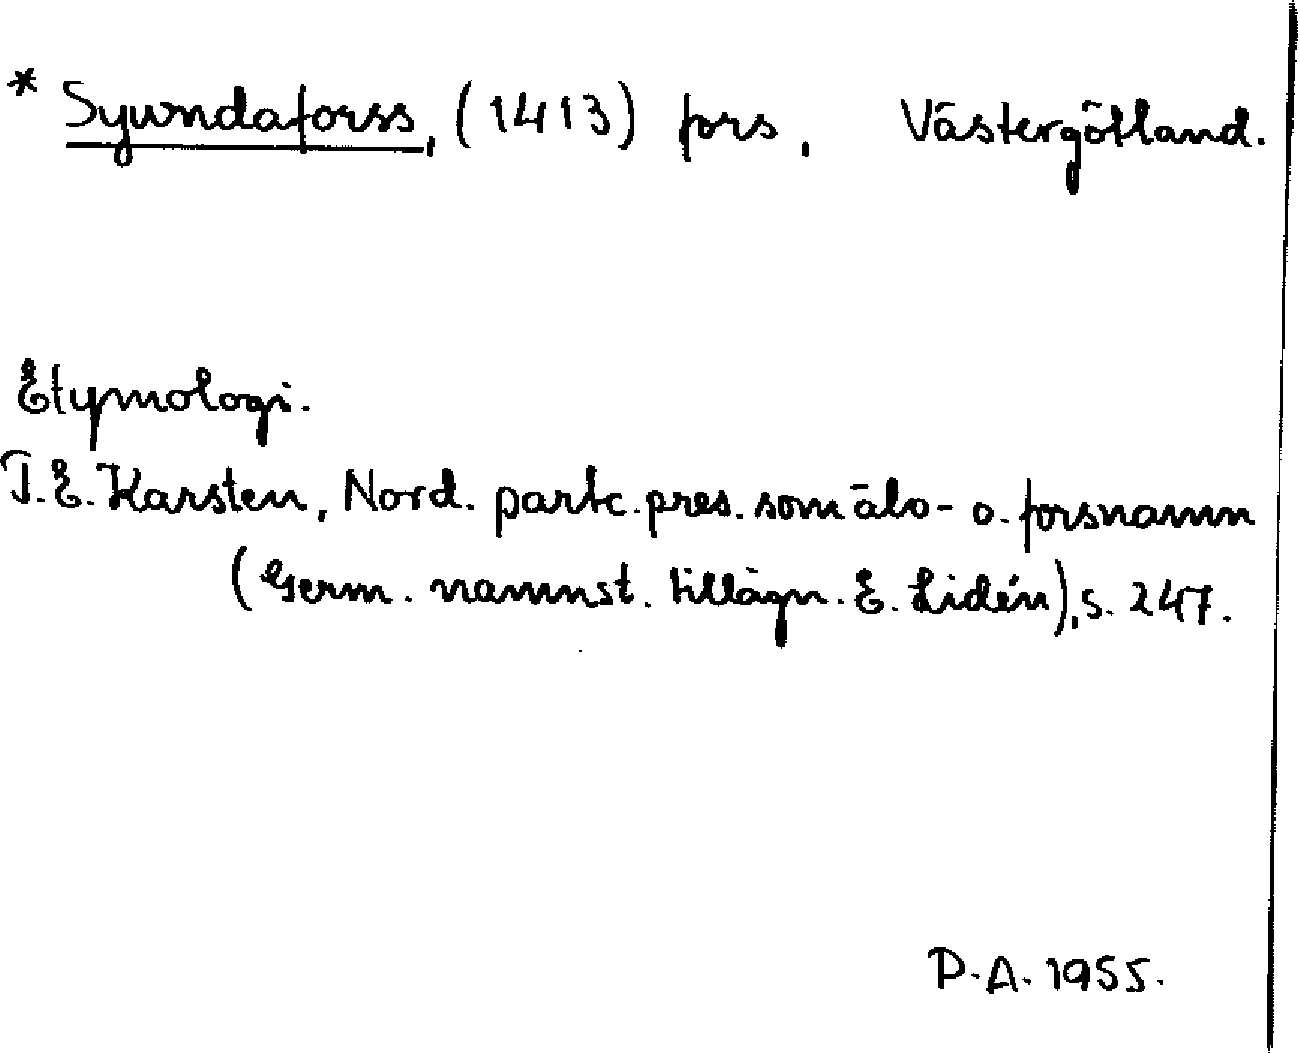 * Syundaforss, (1413) fors, Västergötland.
Etymologi.
T.E. Karsten, Nord. partc. pres. som älv- o. forsnamn
(Germ. namnst. tillägn. E. Lidén), s. 247.
P.A. 1955.